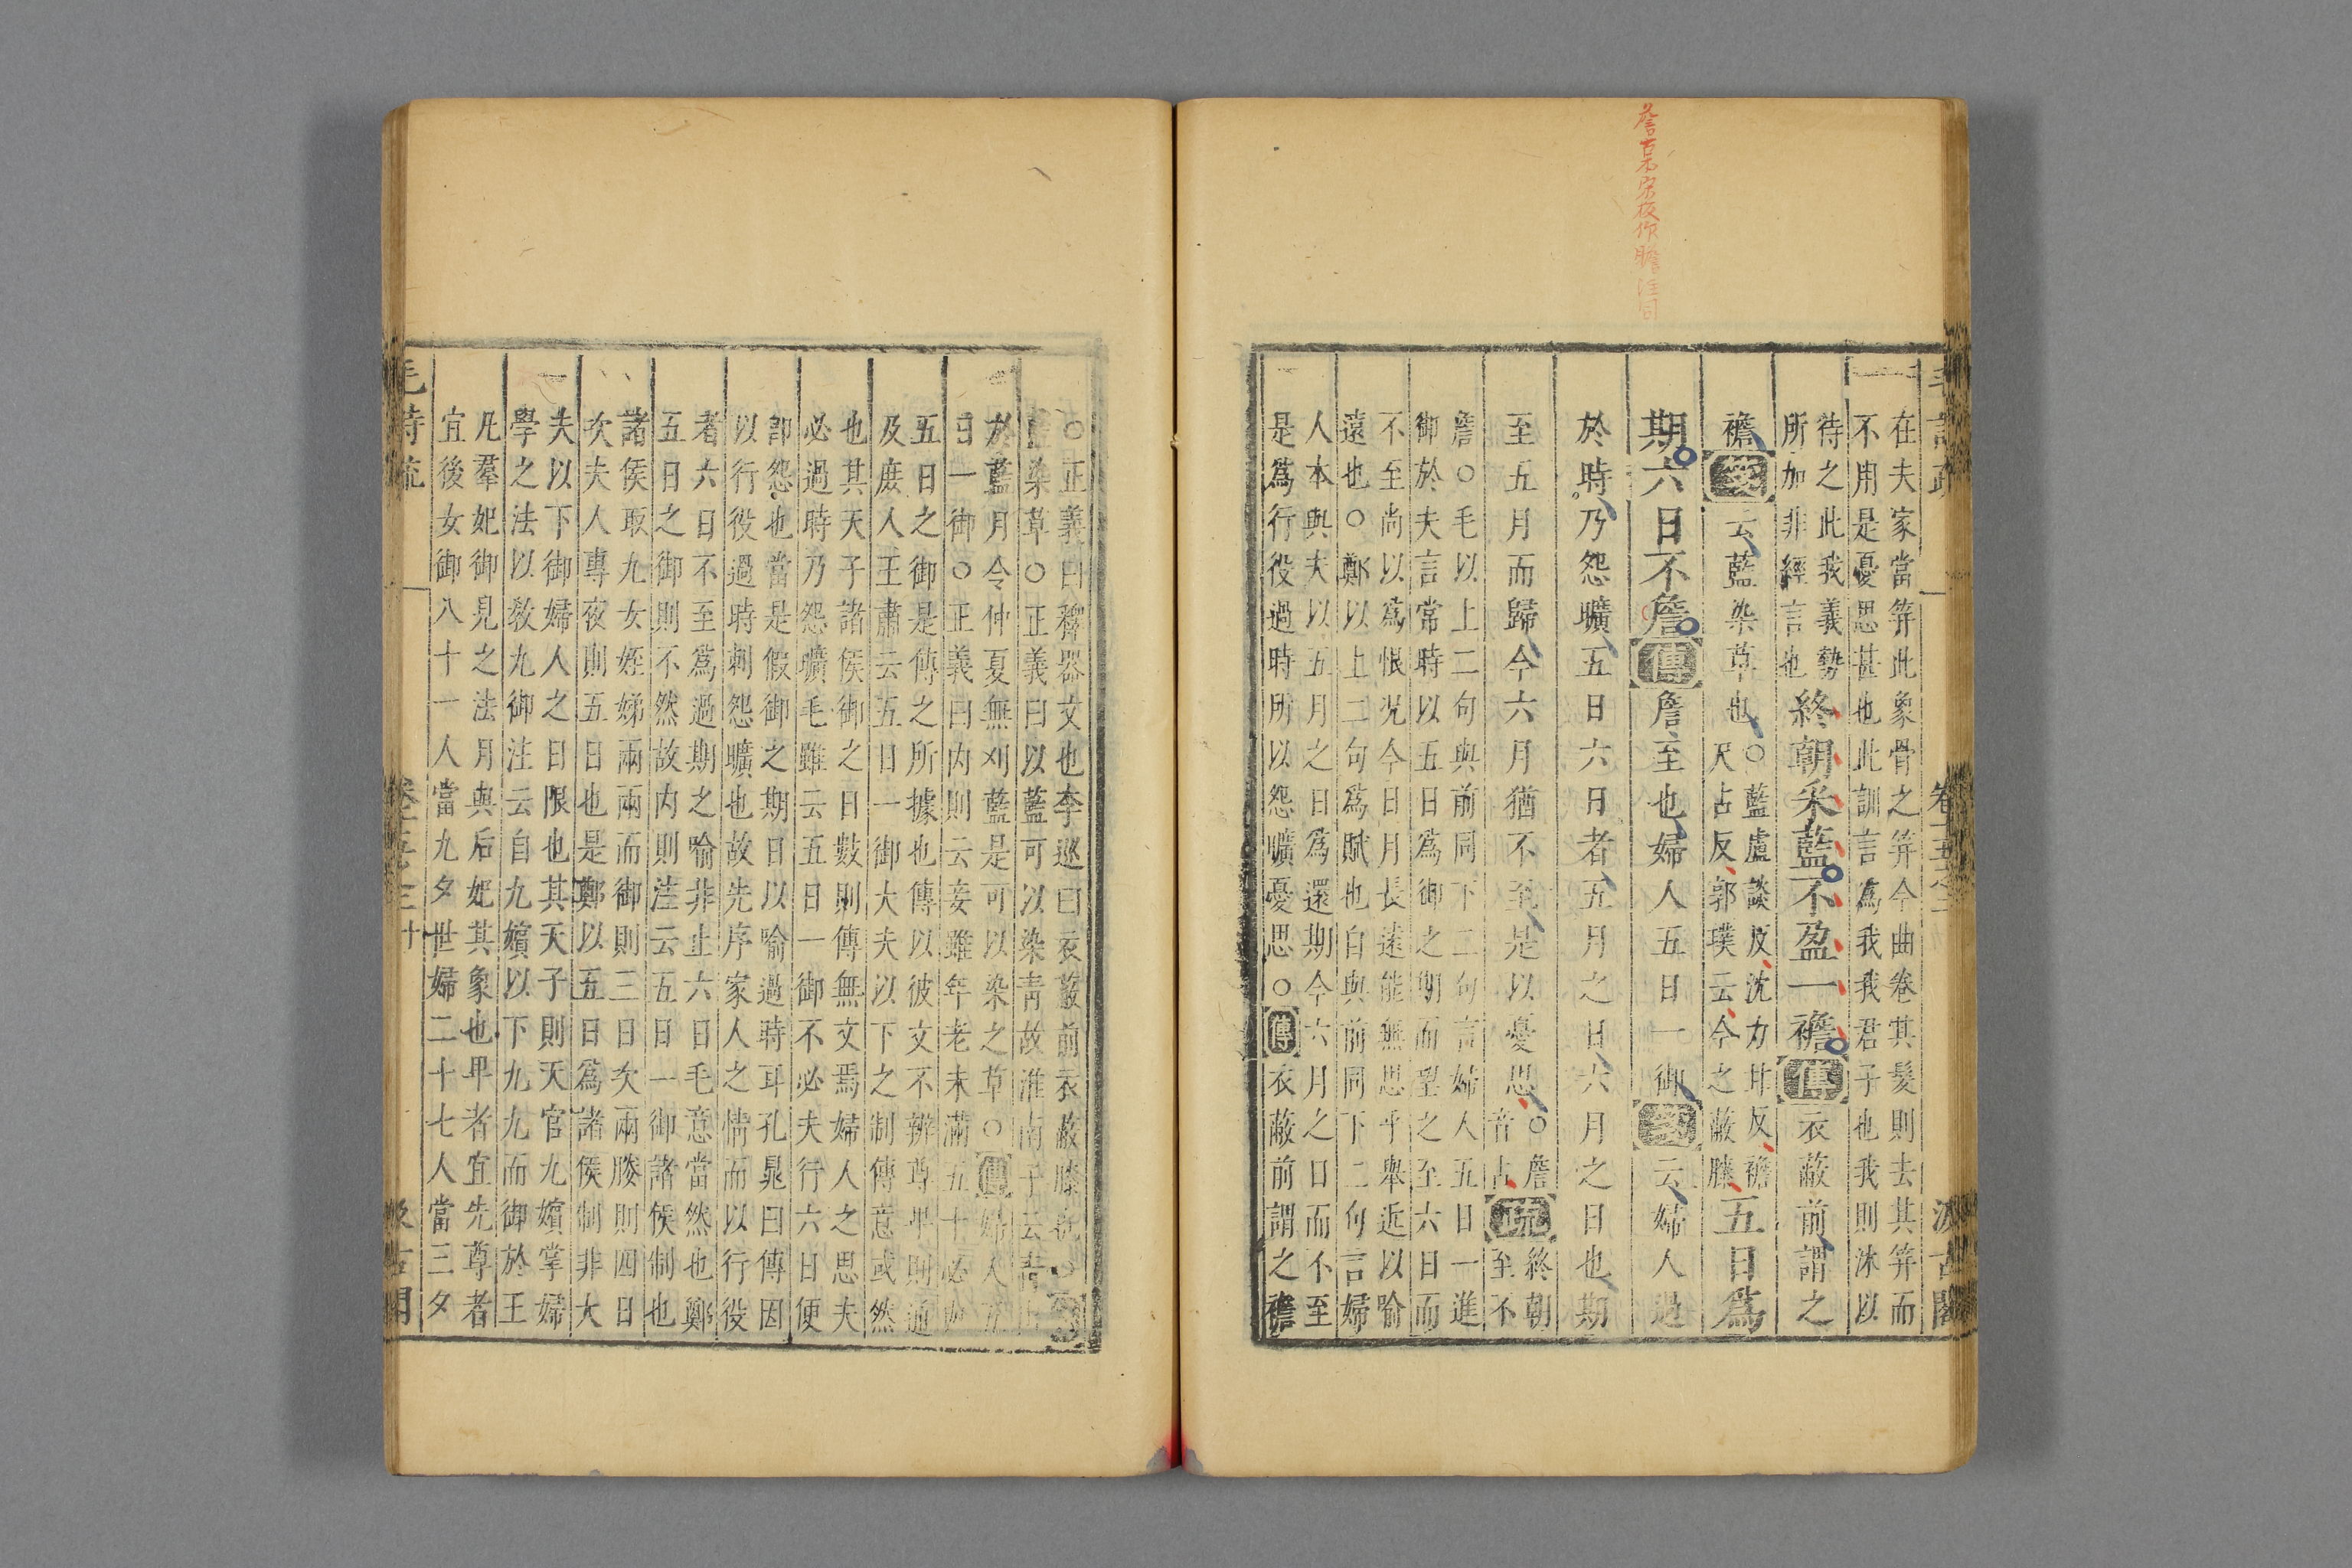 詹古本宋板作瞻注同
在夫家當筓此象骨之筓今曲卷其髮則去其筓而
不用是憂思甚也此訓言爲我我君子也我則沐以
待之此我義勢
所加非經言也
終朝采藍不盈一襜傳衣蔽前謂之
襜箋云藍染草也
○藍盧談反沈力甘反襜
尺占反郭璞云今之蔽膝
五日爲
期六日不詹傳詹至也婦人五日一御箋云婦人過
於時乃怨曠五日六日者五月之日六月之日也期
至五月而歸今六月猶不至是以憂思
○詹
音占
疏
終朝
至不
詹○毛以上二句與前同下二句言婦人五日一進
御於夫言常時以五日爲御之期而望之至六日而
不至尚以爲恨況今日月長遠能無思乎舉近以喻
遠也○鄭以上二句爲賦也自與前同下二句言婦
人本與夫以五月之日爲還期今六月之日而不至
是爲行役過時所以怨曠憂思○傳衣蔽前謂之襜
○正義曰釋器文也李巡曰衣蔽前衣蔽膝也○箋
藍染草○正義曰以藍可以染青故淮南子云青出
於藍月令仲夏無刈藍是可以染之草○傳婦人五
日一御○正義曰内則云妾雖年老未滿五十必與
五日之御是傳之所據也傳以彼文不辨尊卑則通
及庶人王肅云五日一御大夫以下之制傳意或然
也其天子諸侯御之日數則傳無文焉婦人之思夫
必過時乃怨曠毛雖云五日一御不必夫行六日便
卽怨也當是假御之期日以喻過時耳孔晁曰傳因
以行役過時刺怨曠也故先序家人之情而以行役
者六日不至爲過期之喻非止六日毛意當然也鄭
五日之御則不然故内則注云五日一御諸侯制也
諸侯取九女姪娣兩兩而御則三日次兩媵則四日
次夫人專夜則五日也是鄭以五日爲諸侯制非大
夫以下御婦人之日限也其天子則天官九嬪掌婦
學之法以敎九御注云自九嬪以下九九而御於王
凡羣妃御見之法月與后妃其象也卑者宜先尊者
宜後女御八十一人當九夕世婦二十七人當三夕